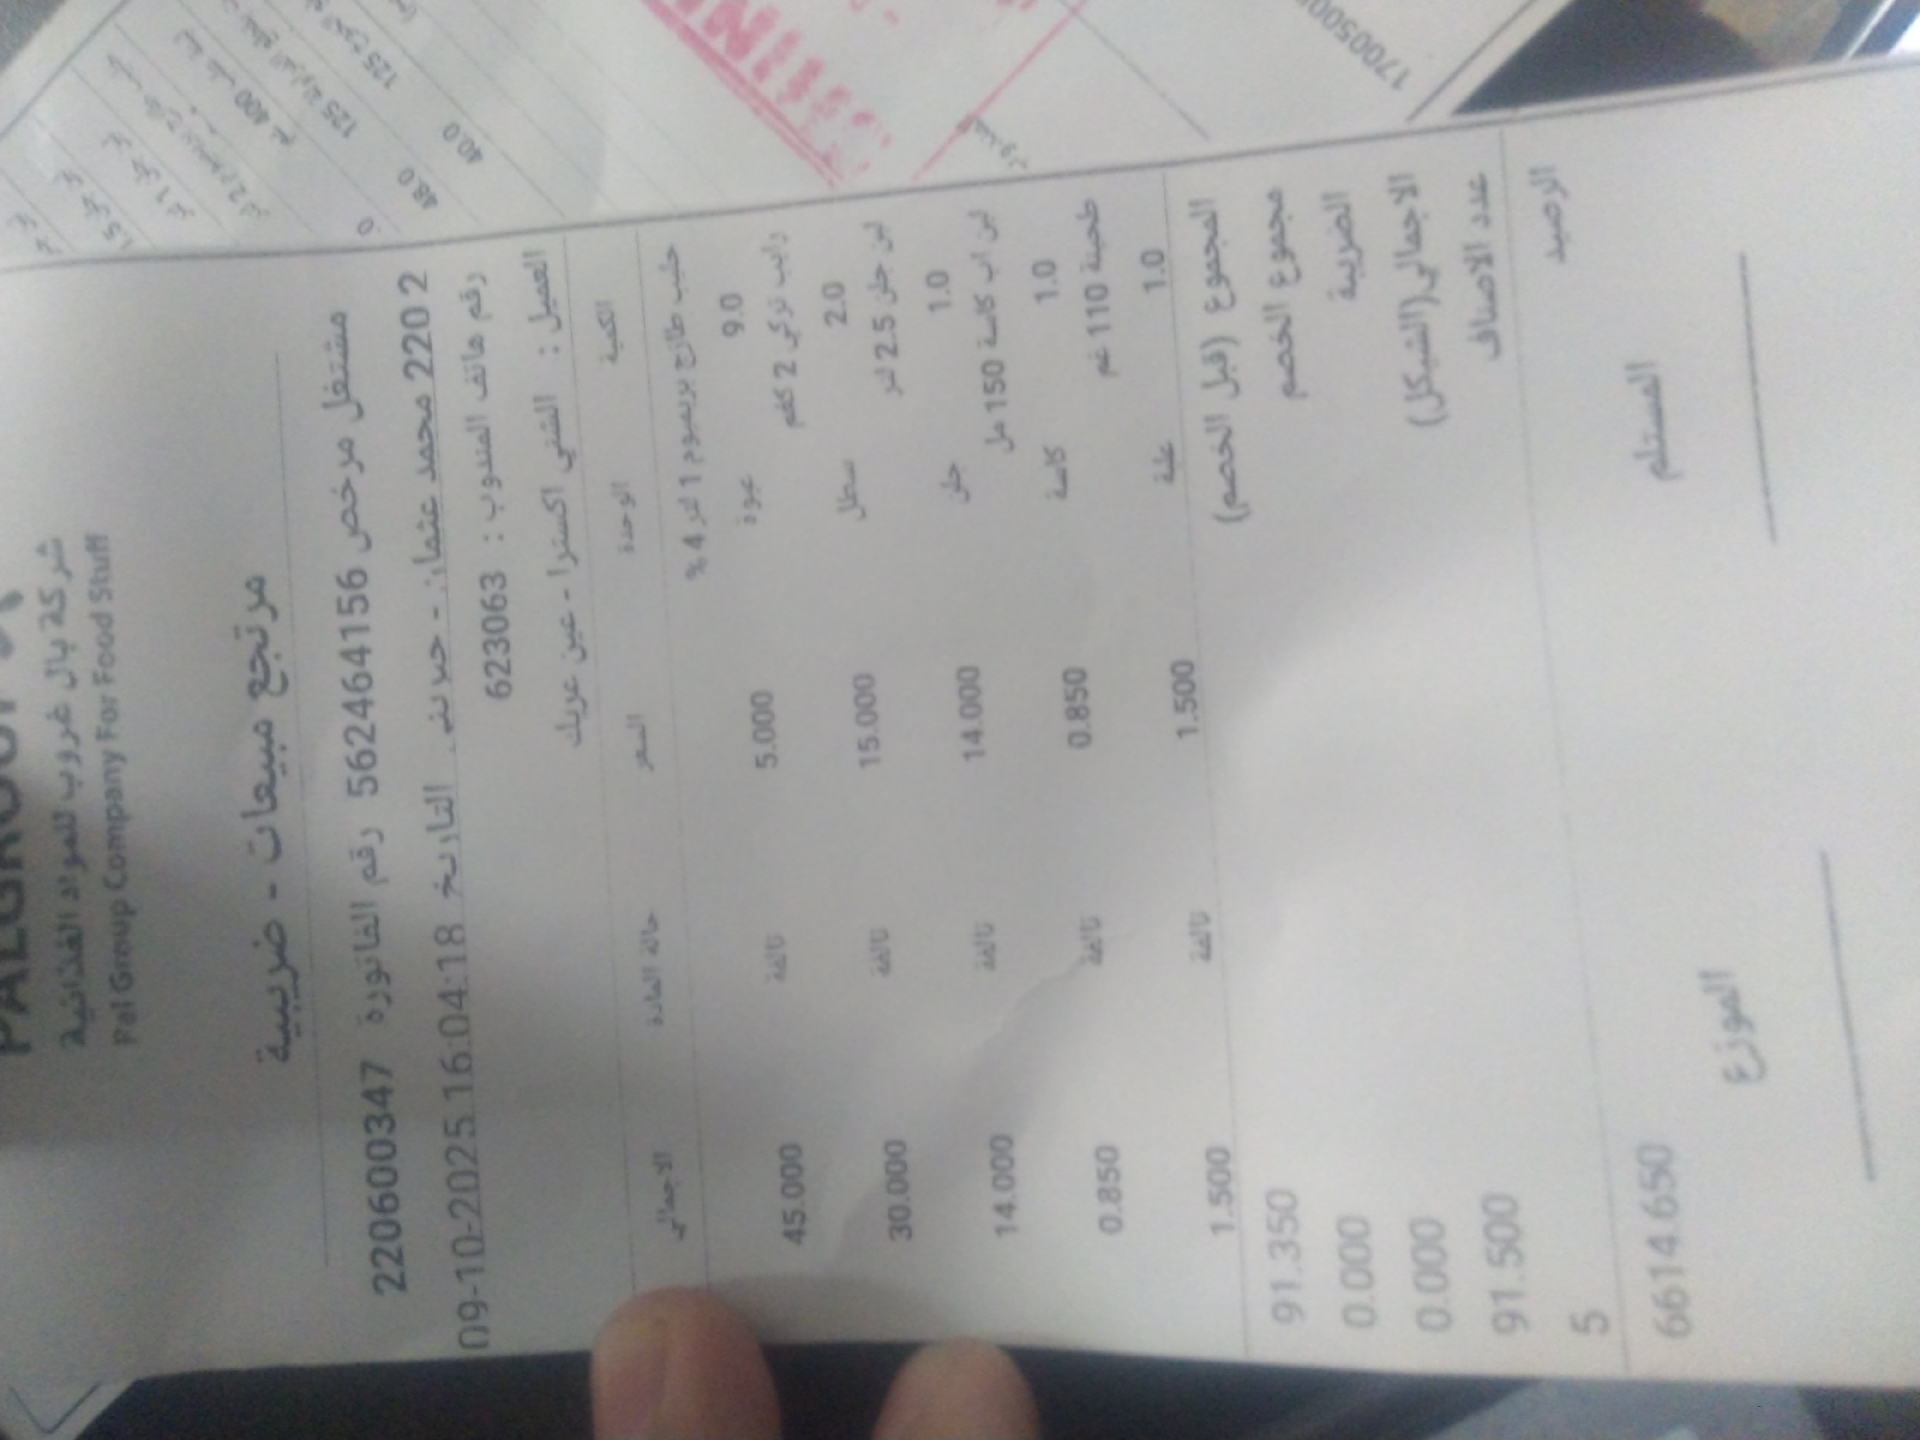 PALGROUP
شركة بال غروب للمواد الغذائية
Pal Group Company For Food Stuff
مرتجع مبيعات - ضريبية
مشتغل مرخص 562464156 رقم الفاتورة 220600347
2 220 محمد عثمان - جوينت التاريخ 09-10-2025 16:04:18
رقم هاتف المندوب : 623063
العميل : الشني اكسترا - عين عريك
الكمية الوحدة السعر حالة المادة الاجمالي
حليب طازج بريميوم 1 لتر 4 %
9.0 عبوة 5.000 تالفة 45.000
رايب تركي 2 كغم
2.0 سطل 15.000 تالفة 30.000
لبن جلن 2.5 لتر
1.0 جلن 14.000 تالفة 14.000
لبن اب كاسة 150 مل
1.0 كاسة 0.850 تالفة 0.850
طحينة 110 غم
1.0 علبة 1.500 تالفة 1.500
المجموع (قبل الخصم) 91.350
مجموع الخصم 0.000
الضريبة 0.000
الاجمالي(الشيكل) 91.500
عدد الاصناف 5
الرصيد 66614.650
المستلم الموزع
125
125
48.0
40.0